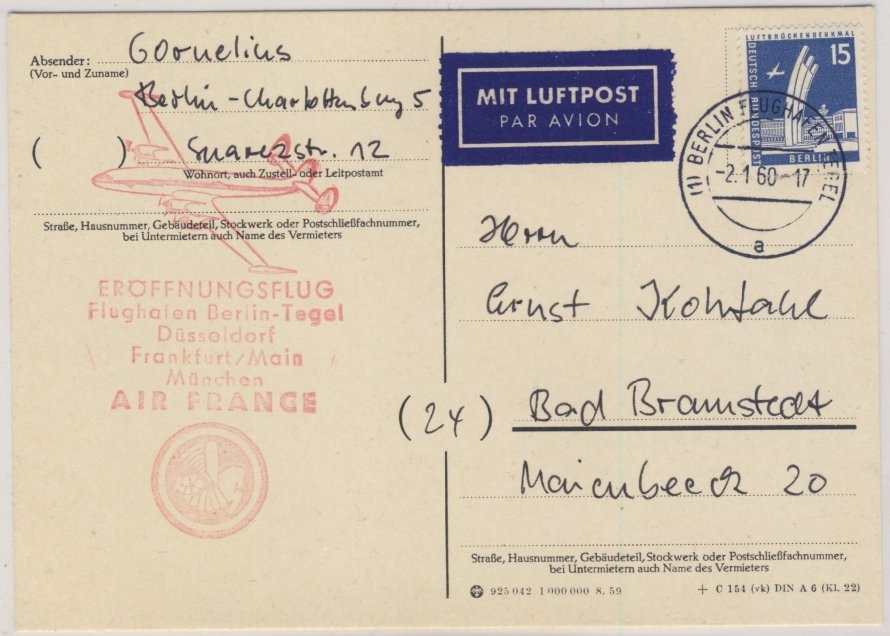 Absender:
(Vor- und Zuname)
Cornelius
Berlin-Charlottenburg 5
( ) Suarezstr. 12
Wohnort, auch Zustell- oder Leitpostamt
Straße, Hausnummer, Gebäudeteil, Stockwerk oder Postschließfachnummer,
bei Untermietern auch Name des Vermieters
ERÖFFNUNGSFLUG
Flughafen Berlin-Tegel
Düsseldorf
Frankfurt/Main
München
AIR FRANCE
MIT LUFTPOST
PAR AVION
LUFTBRÜCKENDENKMAL
15
DEUTSCHE BUNDESPOST
BERLIN
(1) BERLIN FLUGHAFEN TEGEL
-2.1.60-17
a
Herrn
Ernst
(24) Bad Bramstedt
Maienbeeck 20
Straße, Hausnummer, Gebäudeteil, Stockwerk oder Postschließfachnummer,
bei Untermietern auch Name des Vermieters
925 042 1 000 000 8. 59
+ C 154 (vk) DIN A 6 (Kl. 22)